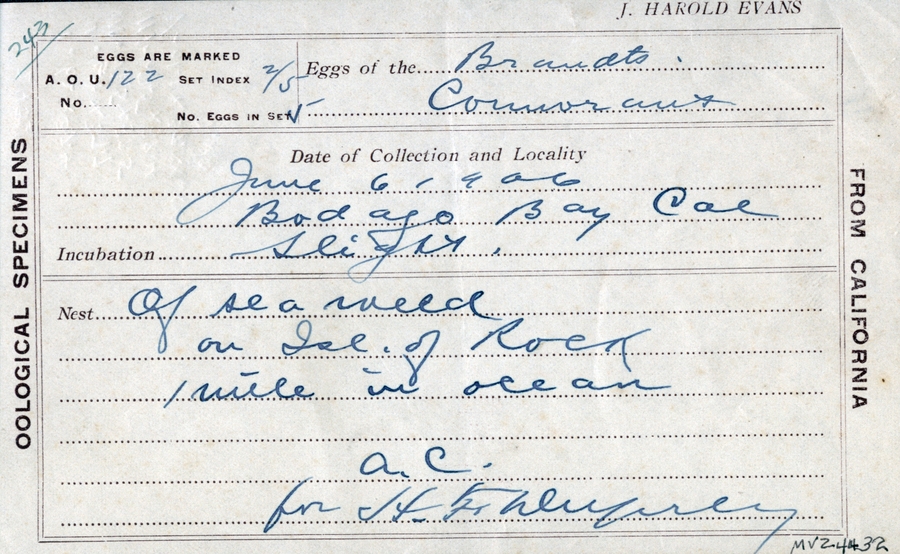 J. HAROLD EVANS
243
EGGS ARE MARKED
A. O. U. 122 SET INDEX 2/5
No.
No. EGGS IN SET 5
Eggs of the Brandts.
Cormorant
Date of Collection and Locality
June 6, 1906
Bodago Bay Cal
Incubation Slight.
Nest Of sea weed
on Isl. of Rock
1 mile in ocean
a. C.
for H. F.
OOLOGICAL SPECIMENS
FROM CALIFORNIA
MVZ 4432